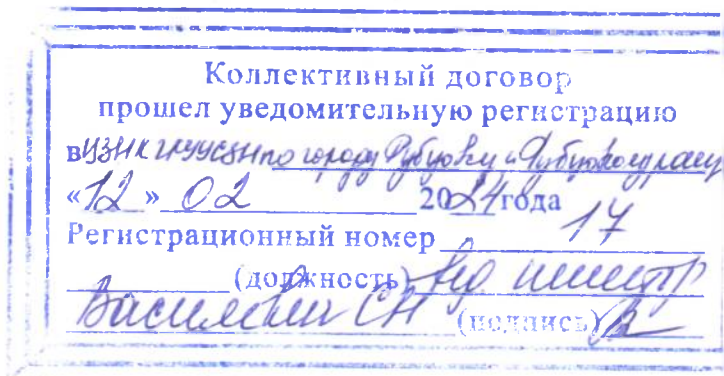 Коллективный договор
прошел уведомительную регистрацию
в УЗН КГКУ УСЗН по городу Рубцовску и Рубцовскому району
«12» 02 2024 года
Регистрационный номер 17
(должность) вед
Василевич СН (подпись)